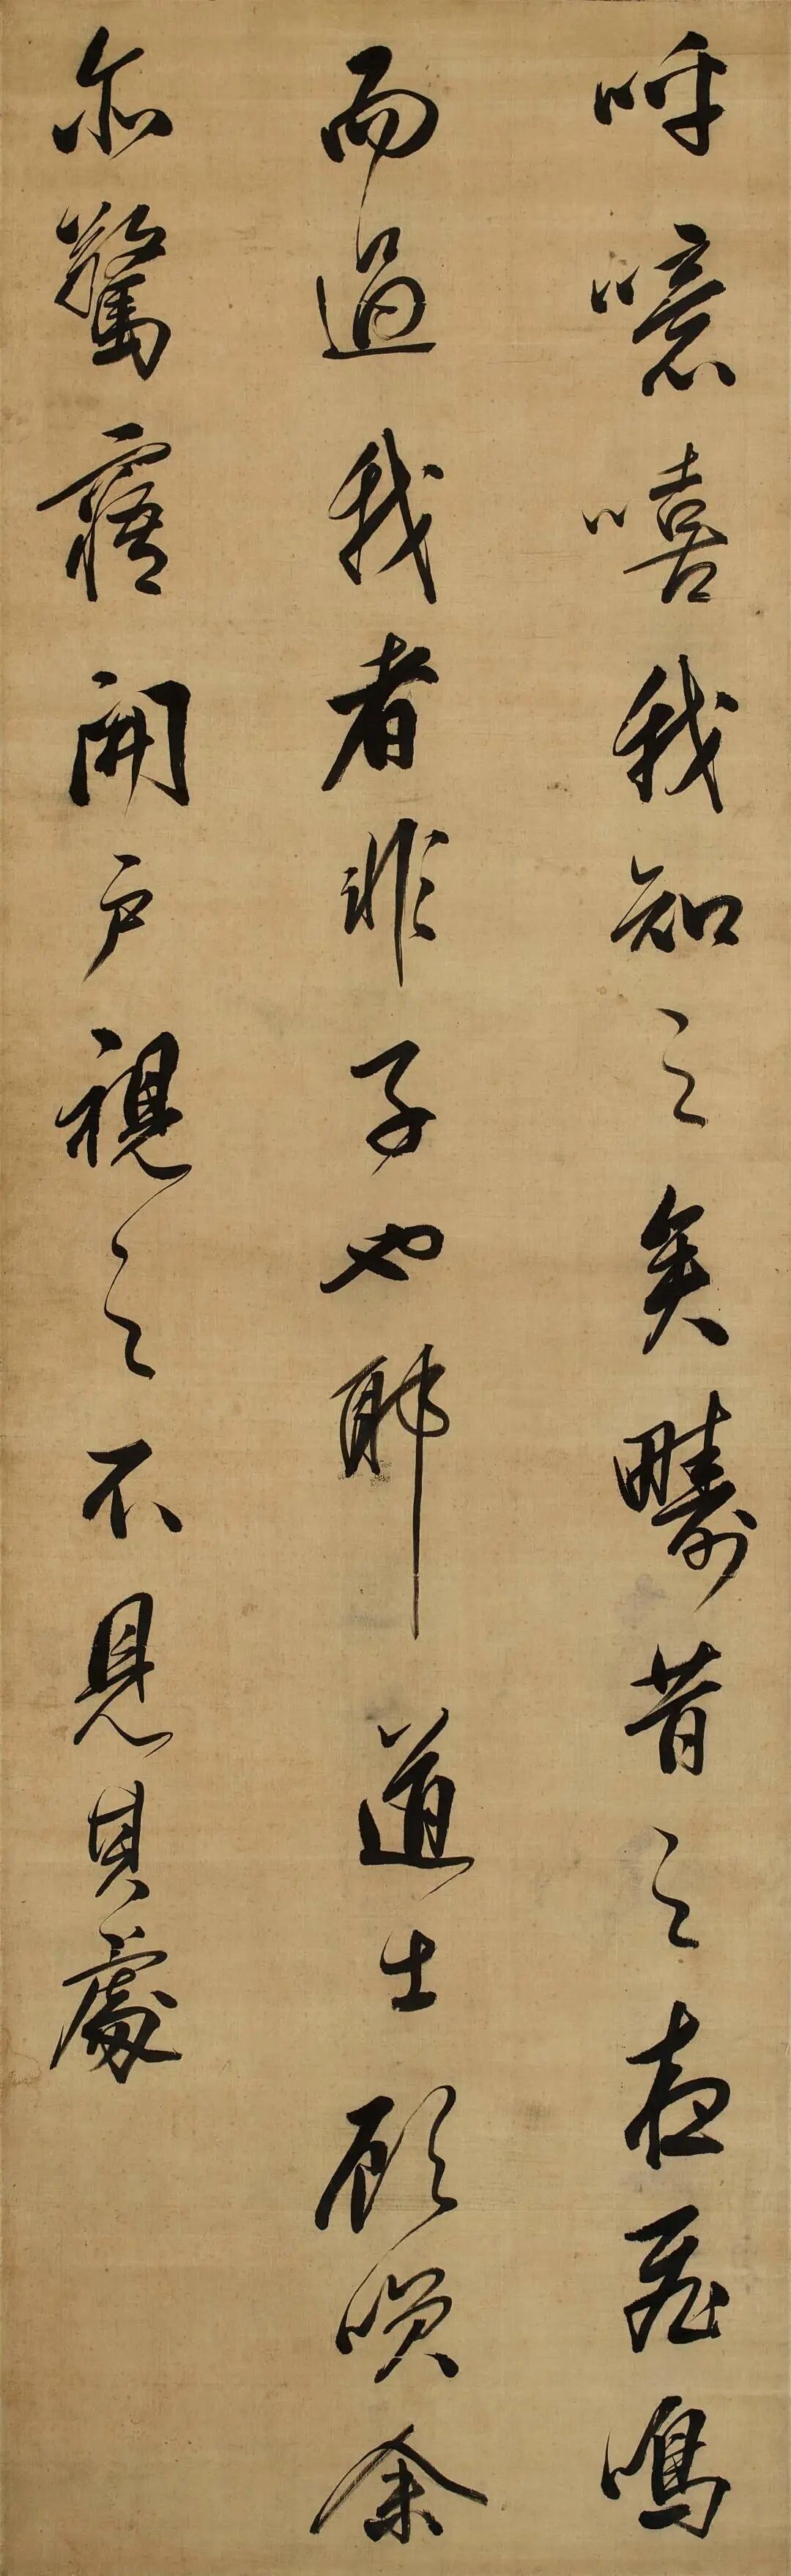 呼噫嘻我知之矣疇昔之夜飛鳴
而過我者非子也耶道士顧笑余
亦驚寤開戶視之不見其處